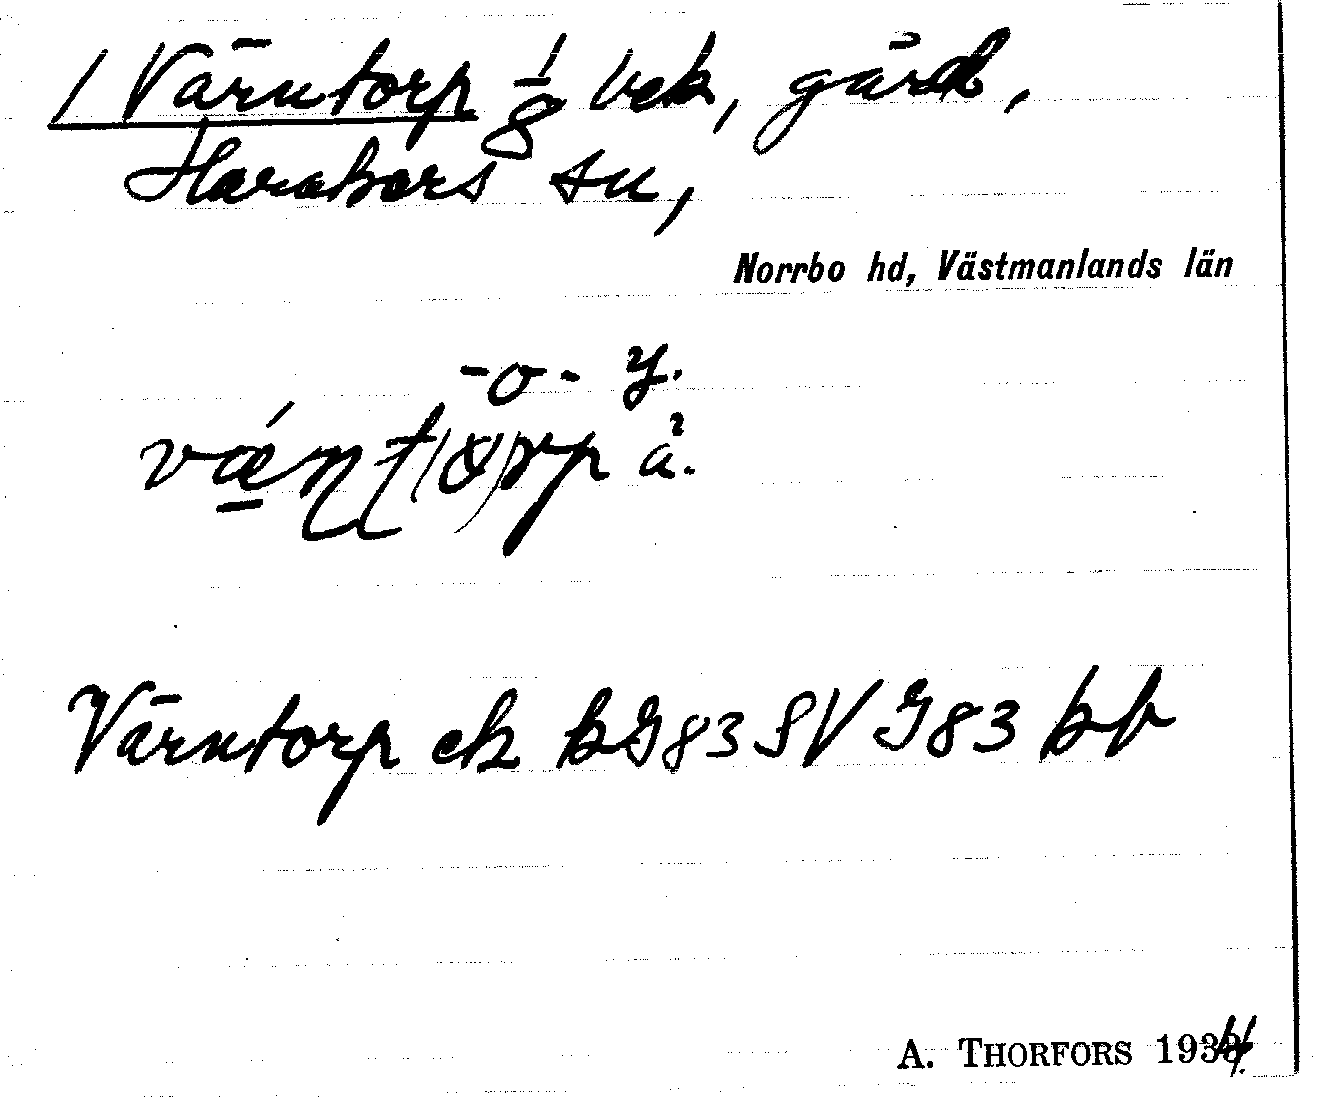 1 Värntorp 1/8 bek, gård,
Harakers sn,
Norrbo hd, Västmanlands län
-o- y.
vǽṇṭ(o)rp ä.
Värntorp ek bG83 SV G83 bb
A. THORFORS 1934.